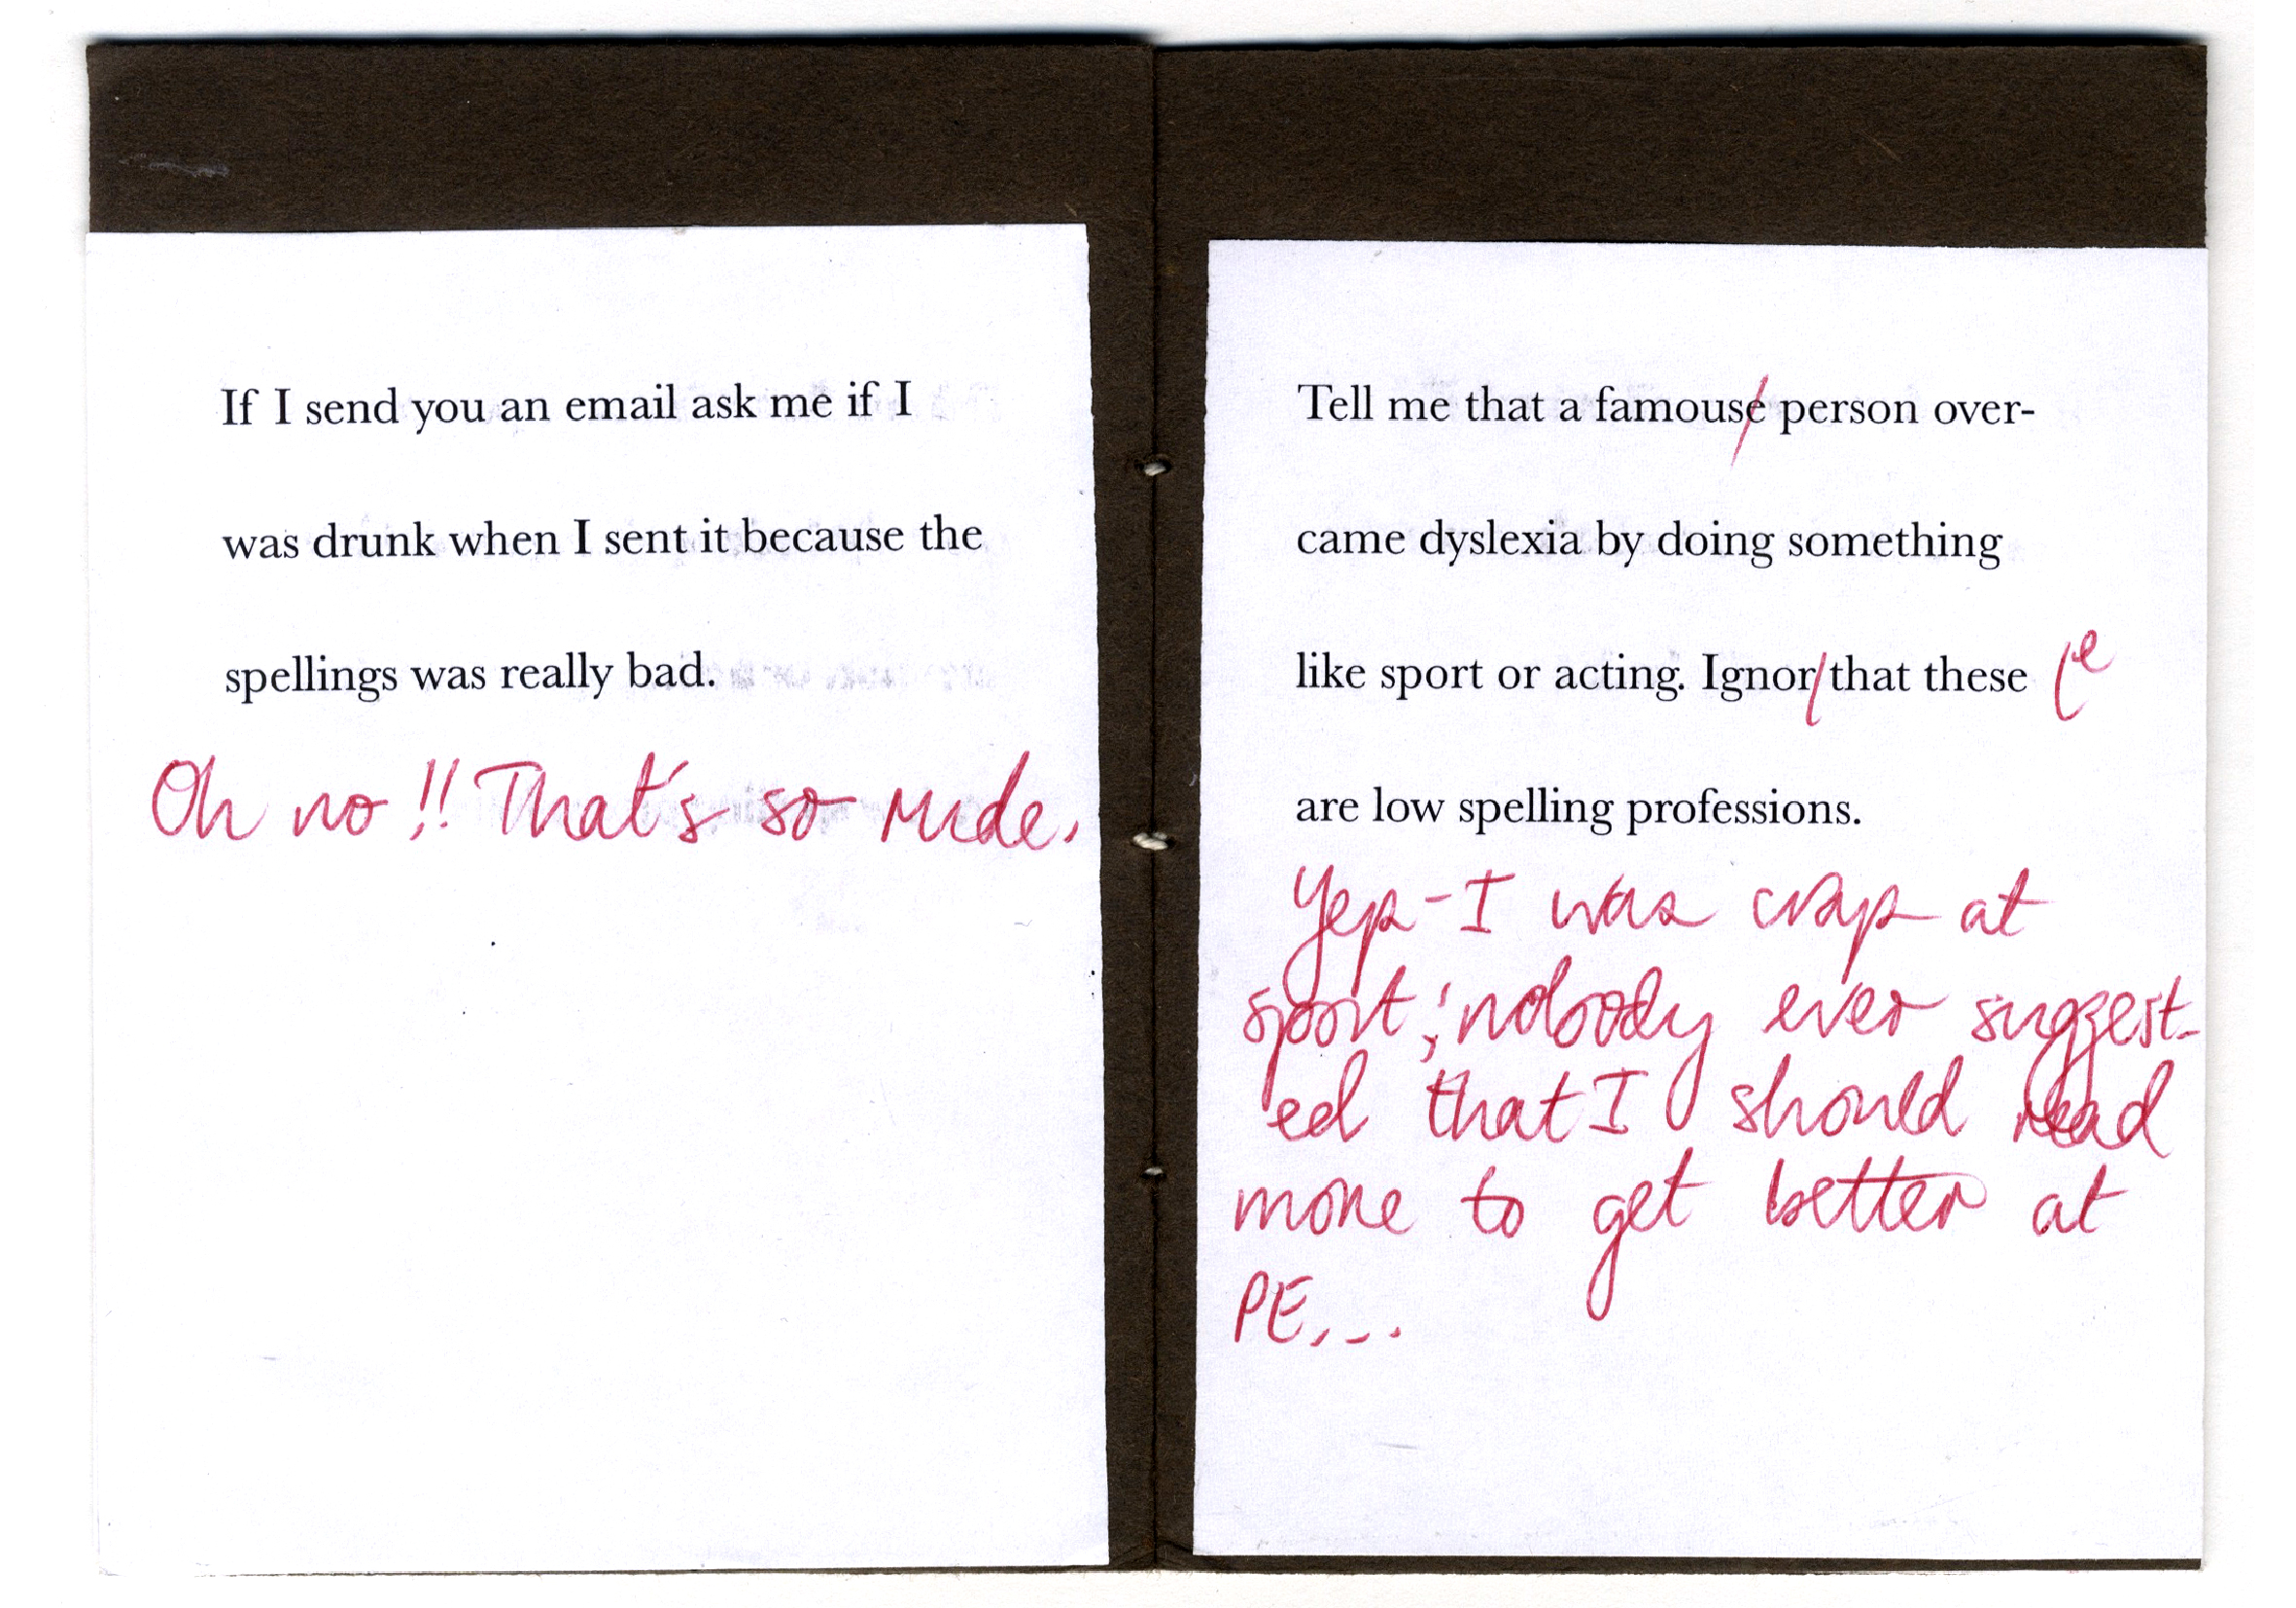 If I send you an email ask me if I
was drunk when I sent it because the
spellings was really bad.
Oh no!! That's so rude.
Tell me that a famouse person over-
came dyslexia by doing something
like sport or acting. Ignor that these
e
are low spelling professions.
Yep - I was crap at
sport; nobody ever suggest-
ed that I should read
more to get better at
PE...